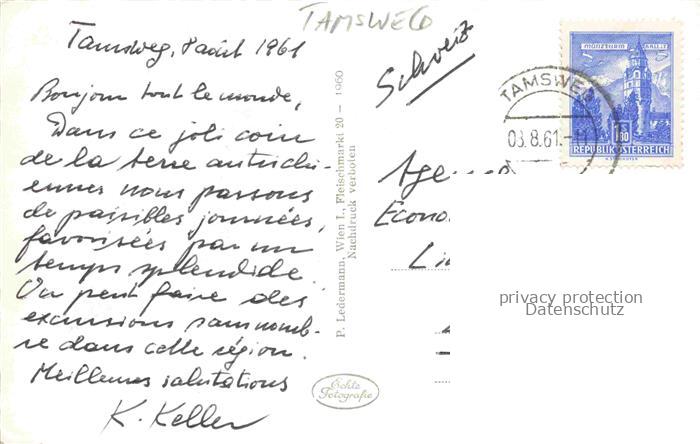 TAMSWEG
Tamsweg, 8 août 1961
Bonjour tout le monde,
Dans ce joli coin
de la terre autrichi-
enne nous passons
de paisibles journées,
favorisées par un
temps splendide.
On peut faire des
excursions sans nomb-
re dans cette région.
Meilleures salutations
K. Keller
P. Ledermann, Wien I., Fleischmarkt 20 — 1960
Nachdruck verboten
Echte
Fotografie
Schweiz
TAMSWEG
08.8.61
MÜNZTURM HALL I.T.
1.80
REPUBLIK ÖSTERREICH
Econo
privacy protection
Datenschutz